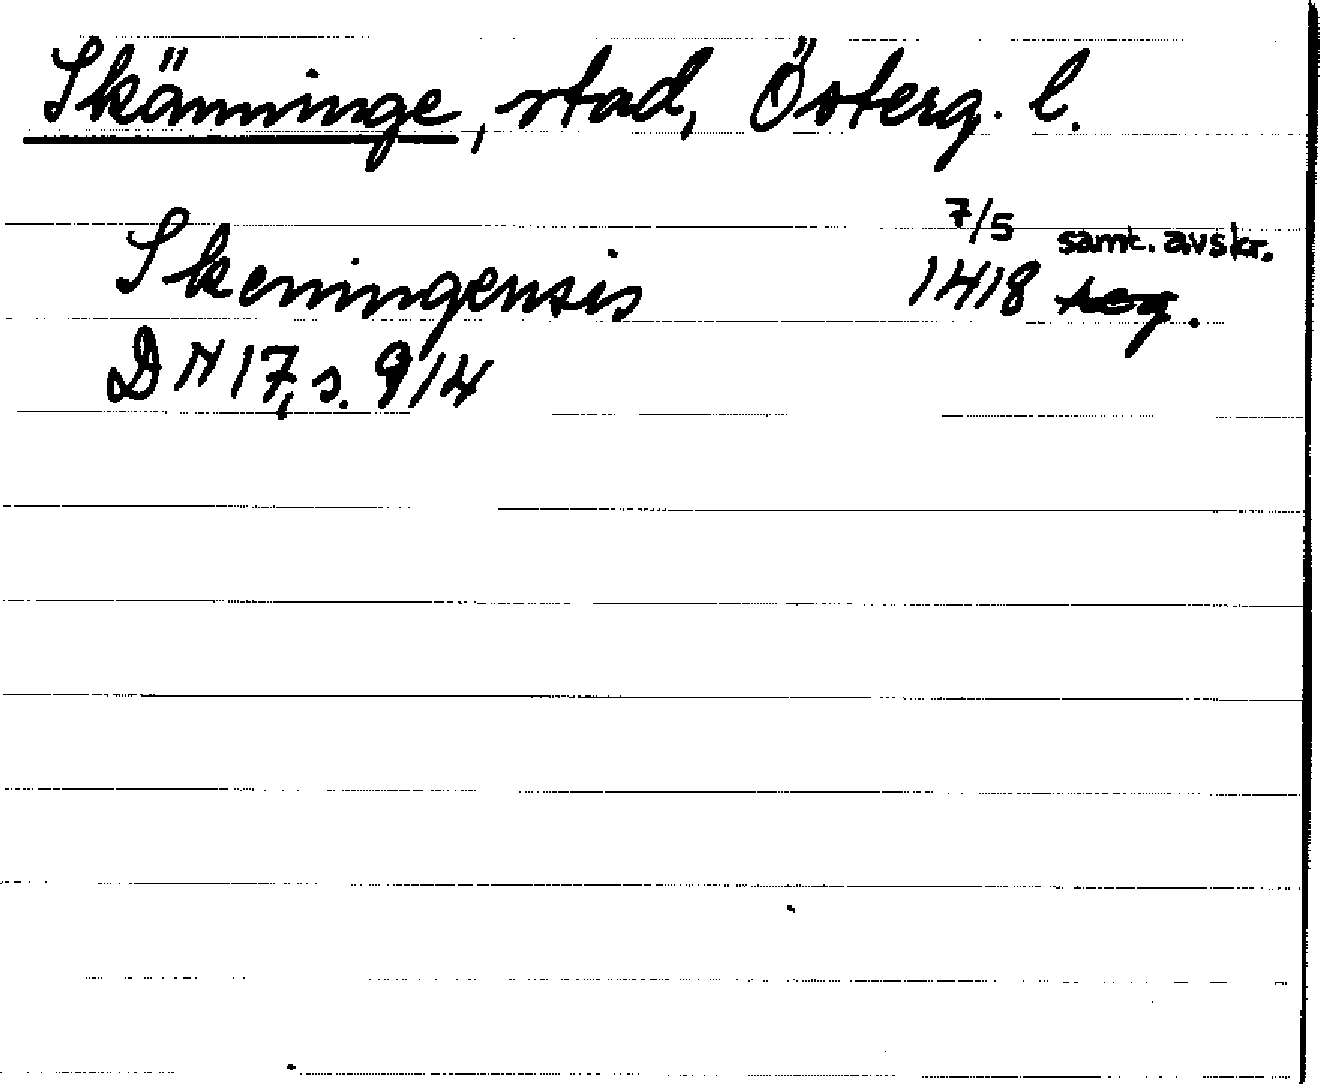 Skänninge, stad, Österg. l.
Skeningensis 7/5 1418 samt. avskr.
DN 17, s. 914